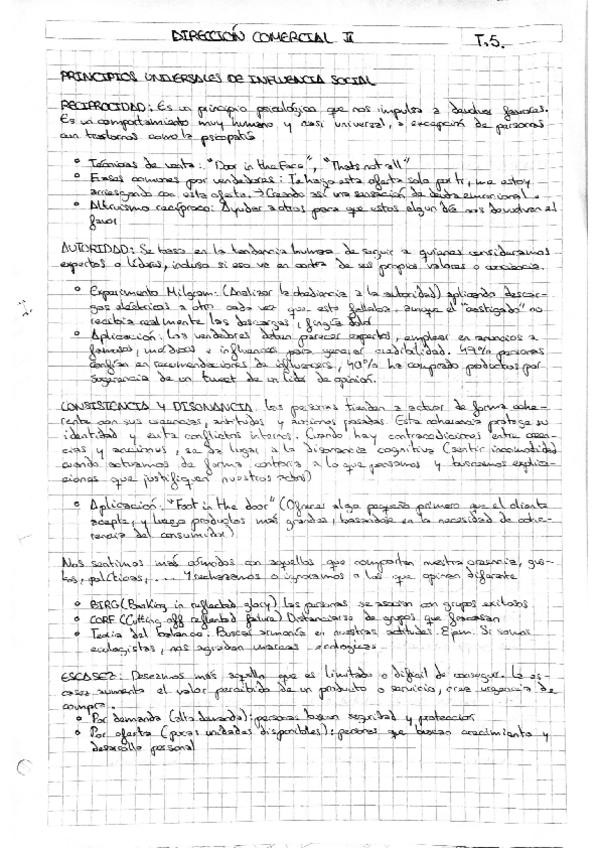 DIRECCIÓN COMERCIAL II
T.5.
PRINCIPIOS UNIVERSALES DE INFLUENCIA SOCIAL
RECIPROCIDAD: Es un principio psicológico que nos impulsa a devolver favores.
Es un comportamiento muy humano y casi universal, a excepción de personas
con trastornos como la psicopatía
• Técnicas de venta: "Door in the face", "Thats not all"
• Frases comunes por vendedores: Te hago esta oferta solo por ti, me estoy
arriesgando con esta oferta. → Creando así una sensación de deuda emocional
• Altruismo recíproco: Ayudar a otros para que estos algun día nos devuelvan el
favor
AUTORIDAD: Se basa en la tendencia humana de seguir a quienes consideramos
expertos o líderes, incluso si eso va en contra de sus propios valores o conciencia.
• Experimento Milgram: (Analizar la obediencia a la autoridad) aplicando descar-
gas eléctricas a otro cada vez que este fallaba. aunque el "castigado" no
recibía realmente las descargas, fingía dolor
• Aplicación: Los vendedores deben parecer expertos, emplear en anuncios a
famosos, médicos e influencers para generar credibilidad. 49% personas
confían en recomendaciones de influencers, 40% ha comprado productos por
sugerencia de un tweet de un líder de opinión.
CONSISTENCIA Y DISONANCIA Las personas tienden a actuar de forma cohe-
rente con sus creencias, actitudes y acciones pasadas. Esta coherencia protege su
identidad y evita conflictos internos. Cuando hay contradicciones entre creen-
cias y acciones, se da lugar a la disonancia cognitiva (sentir incomodidad
cuando actuamos de forma contraria a lo que pensamos y buscamos explica-
ciones que justifiquen nuestros actos)
• Aplicación: "Foot in the door" (Ofrecer algo pequeño primero que el cliente
acepte, y luego productos más grandes, basandose en la necesidad de cohe-
rencia del consumidor)
Nos sentimos más cómodos con aquellos que comparten nuestra creencia, gus-
tos, políticas,... Y rechazamos o ignoramos a los que opinan diferente
• BIRG (Basking in reflected glory) las personas se asocian con grupos exitosos
• CORF (Cutting off reflected failure) Distanciarse de grupos que fracasan
• Teoría del balance. Buscar armonía en nuestras actitudes. Ejem. Si somos
ecologistas, nos agradan marcas ecológicas
ESCASEZ: Deseamos más aquello que es limitado o difícil de conseguir. La es-
casez aumenta el valor percibido de un producto o servicio, crea urgencia de
compra.
• Por demanda (alta demanda): personas buscan seguridad y protección
• Por oferta (pocas unidades disponibles): personas que buscan crecimiento y
desarrollo personal